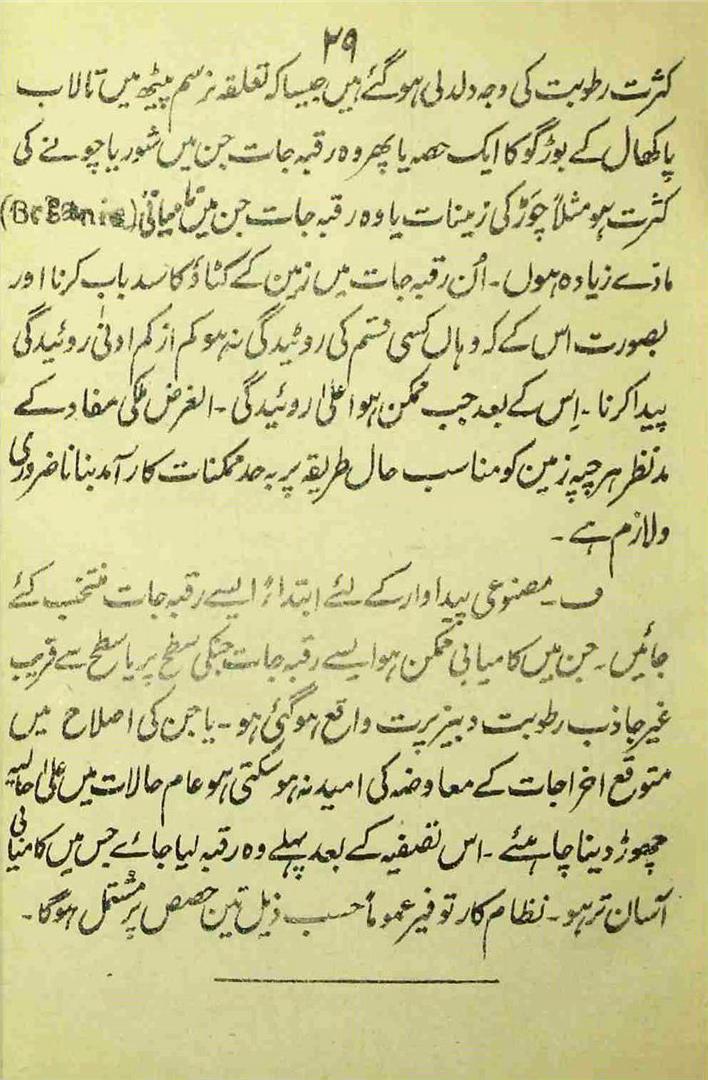 ۲۹
کثرت رطوبت کی وجہ دلدلی ہوگئے ہیں جیسا کہ تعلقہ نرسم پیٹھ میں تالاب
پاکھال کے بوڑگو کا ایک حصہ یا پھر وہ رقبہ جات جن میں شور یا چونے کی
کثرت ہو مثلاً چوَڑ کی زمینات یا وہ رقبہ جات جن میں نامیاتی
مادے زیادہ ہوں۔ اُن رقبہ جات میں زمین کے کٹاؤ کا سدباب کرنا اور
بصورت اس کے کہ وہاں کسی قسم کی روئیدگی نہ ہو کم از کم ادنیٰ روئیدگی
پیدا کرنا۔ اِس کے بعد جب ممکن ہو اعلیٰ روئیدگی۔ الغرض ملکی مفاد کے
مدنظر ہر چپہ زمین کو مناسب حال طریقہ پر بہ حد ممکنات کارآمد بنانا ضروری
و لازم ہے۔
ف۔ مصنوعی پیداوار کے لئے ابتداءً ایسے رقبہ جات منتخب کئے
جائیں۔ جن میں کامیابی ممکن ہو ایسے رقبہ جات جنکی سطح پر یا سطح سے قریب
غیر جاذب رطوبت دبیز پرت واقع ہوگئی ہو۔ یا جن کی اصلاح میں
متوقع اخراجات کے معاوضہ کی امید نہ ہوسکتی ہو عام حالات میں علیٰ حالیہ
چھوڑ دینا چاہئے۔ اس تصفیہ کے بعد پہلے وہ رقبہ لیا جائے جس میں کامیابی
آسان تر ہو۔ نظام کار توفیر عموماً حسب ذیل تین حصص پر مشتمل ہوگا۔